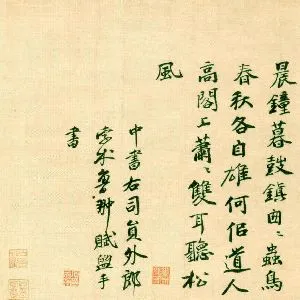 晨鐘暮鼓鎮匆〻蟲鳥
春秋各自雄何佀道人
高閣上蕭〻雙耳聽松
風
中書右司員外郎
孛术魯翀賦盥手
書